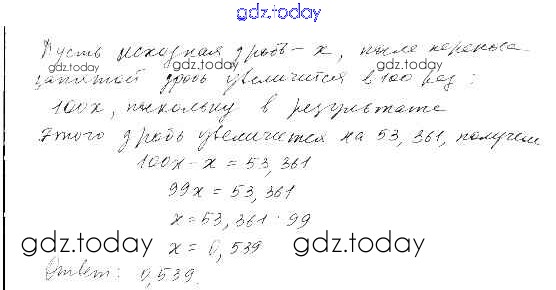 gdz.today
Пусть исходная дробь – x, после переноса
gdz.today gdz.today
запятой дробь увеличится в 100 раз:
100x, поскольку в результате
этого дробь увеличится на 53,361, получаем
100x - x = 53,361
99x = 53,361
x = 53,361 : 99
gdz.today gdz.today
x = 0,539
Ответ: 0,539.